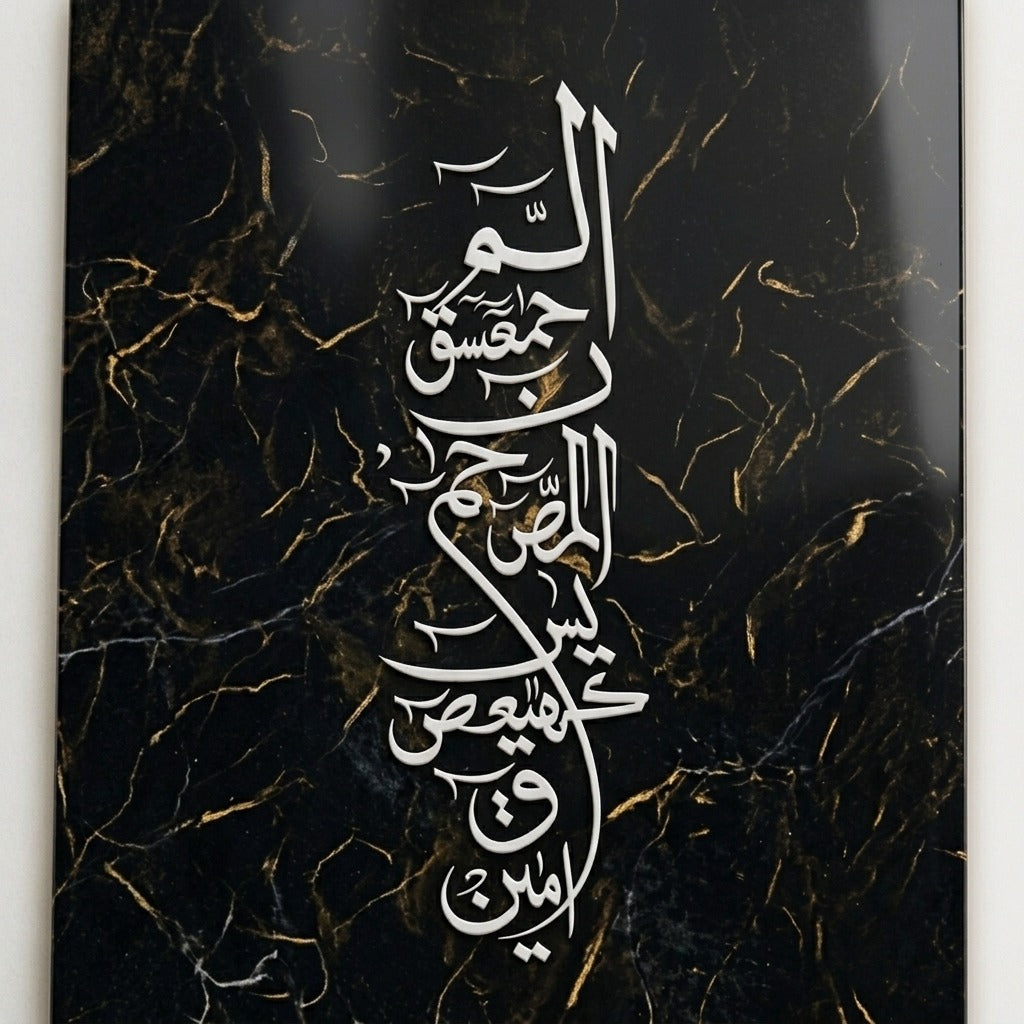 الٓمّٓ
حمعسق
ن
حم
المّصٓ
يس
كهيعص
ق
امين